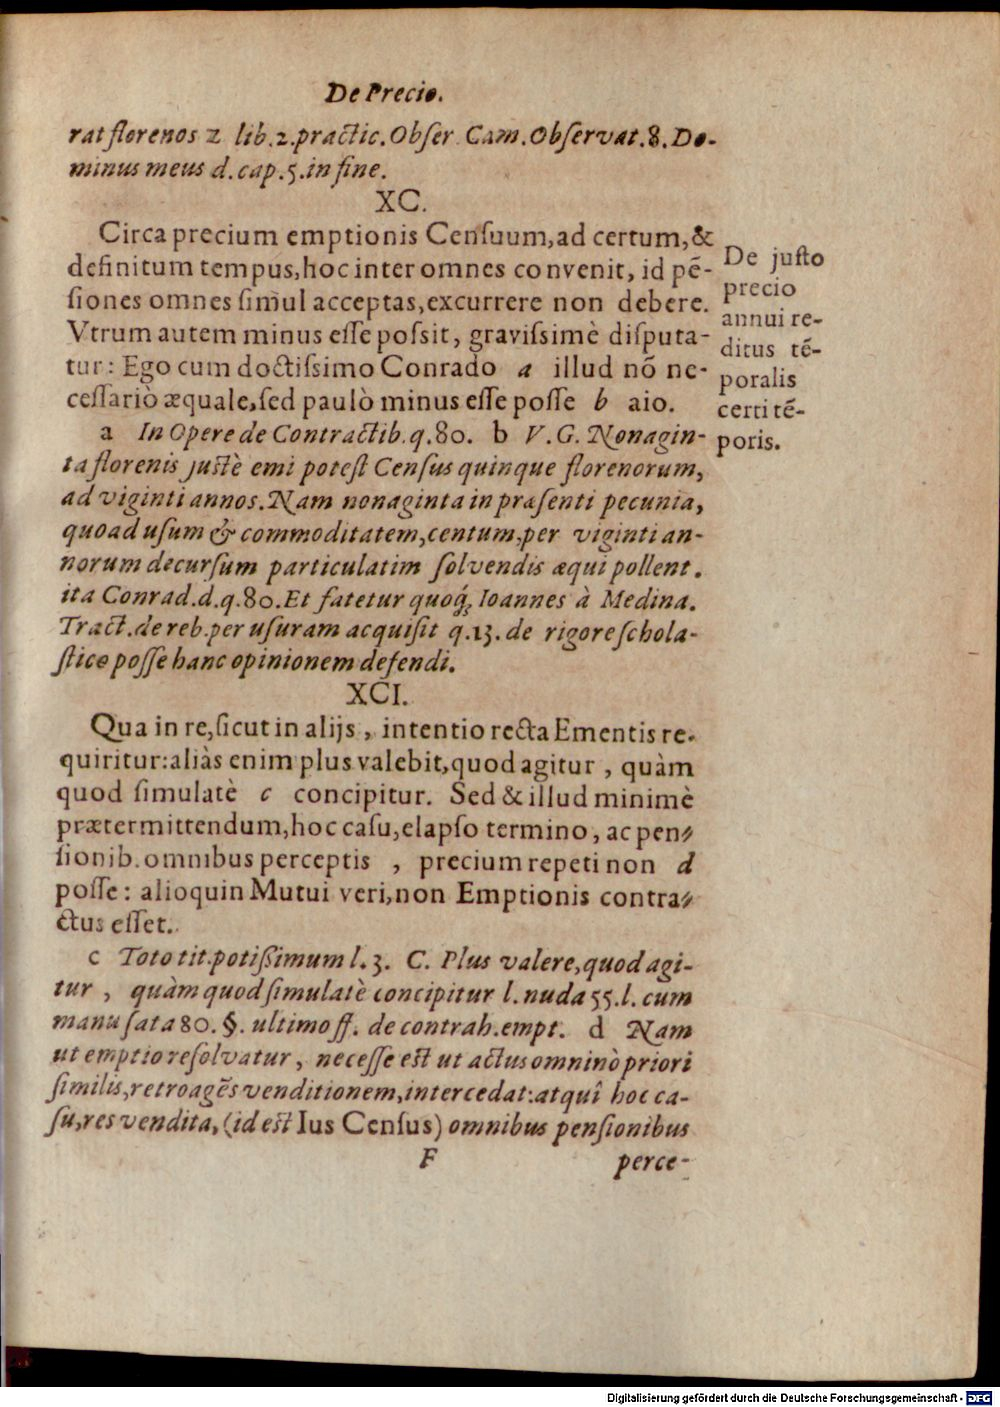 De Precio.
rat florenos 2 lib.2.practic.Obſer. Cam.Obſervat.8.Do-
minus meus d. cap.5.in fine.
XC.
Circa precium emptionis Cenſuum,ad certum,&
definitum tempus,hoc inter omnes convenit, id pẽ-
ſiones omnes ſimul acceptas,excurrere non debere.
Vtrum autem minus eſſe poſsit, graviſsimè diſputa-
tur: Ego cum doctiſsimo Conrado a illud nõ ne-
ceſſariò æquale,ſed paulò minus eſſe poſſe b aio.
De juſto
precio
annui re-
ditus tẽ-
poralis
certi tẽ-
poris.
a In Opere de Contractib.q.80. b V.G. Nonagin-
ta florenis juſtè emi poteſt Cenſus quinque florenorum,
ad viginti annos.Nam nonaginta in præſenti pecunia,
quoad uſum & commoditatem,centum,per viginti an-
norum decurſum particulatim ſolvendis æquipollent.
ita Conrad.d.q.80.Et fatetur quoq́; Ioannes à Medina.
Tract.de reb.per uſuram acquiſit q.13.de rigore ſchola-
ſtico poſſe hanc opinionem defendi.
XCI.
Qua in re,ſicut in alijs, intentio recta Ementis re-
quiritur:aliàs enim plus valebit,quod agitur, quàm
quod ſimulatè c concipitur. Sed & illud minimè
prætermittendum,hoc caſu,elapſo termino, ac pen-
ſionib.omnibus perceptis, precium repeti non d
poſſe: alioquin Mutui veri,non Emptionis contra-
ctus eſſet.
c Toto tit.potiſſimum l.3. C. Plus valere,quod agi-
tur, quàm quod ſimulatè concipitur l.nuda 55.l.cum
manu ſata 80.§.ultimo ff. de contrah.empt. d Nam
ut emptio reſolvatur, neceſſe eſt ut actus omninò priori
ſimilis,retroagẽs venditionem,intercedat:atqui hoc ca-
ſu,res vendita,(id eſt Ius Cenſus) omnibus penſionibus
F perce-
Digitalisierung gefördert durch die Deutsche Forschungsgemeinschaft - DFG